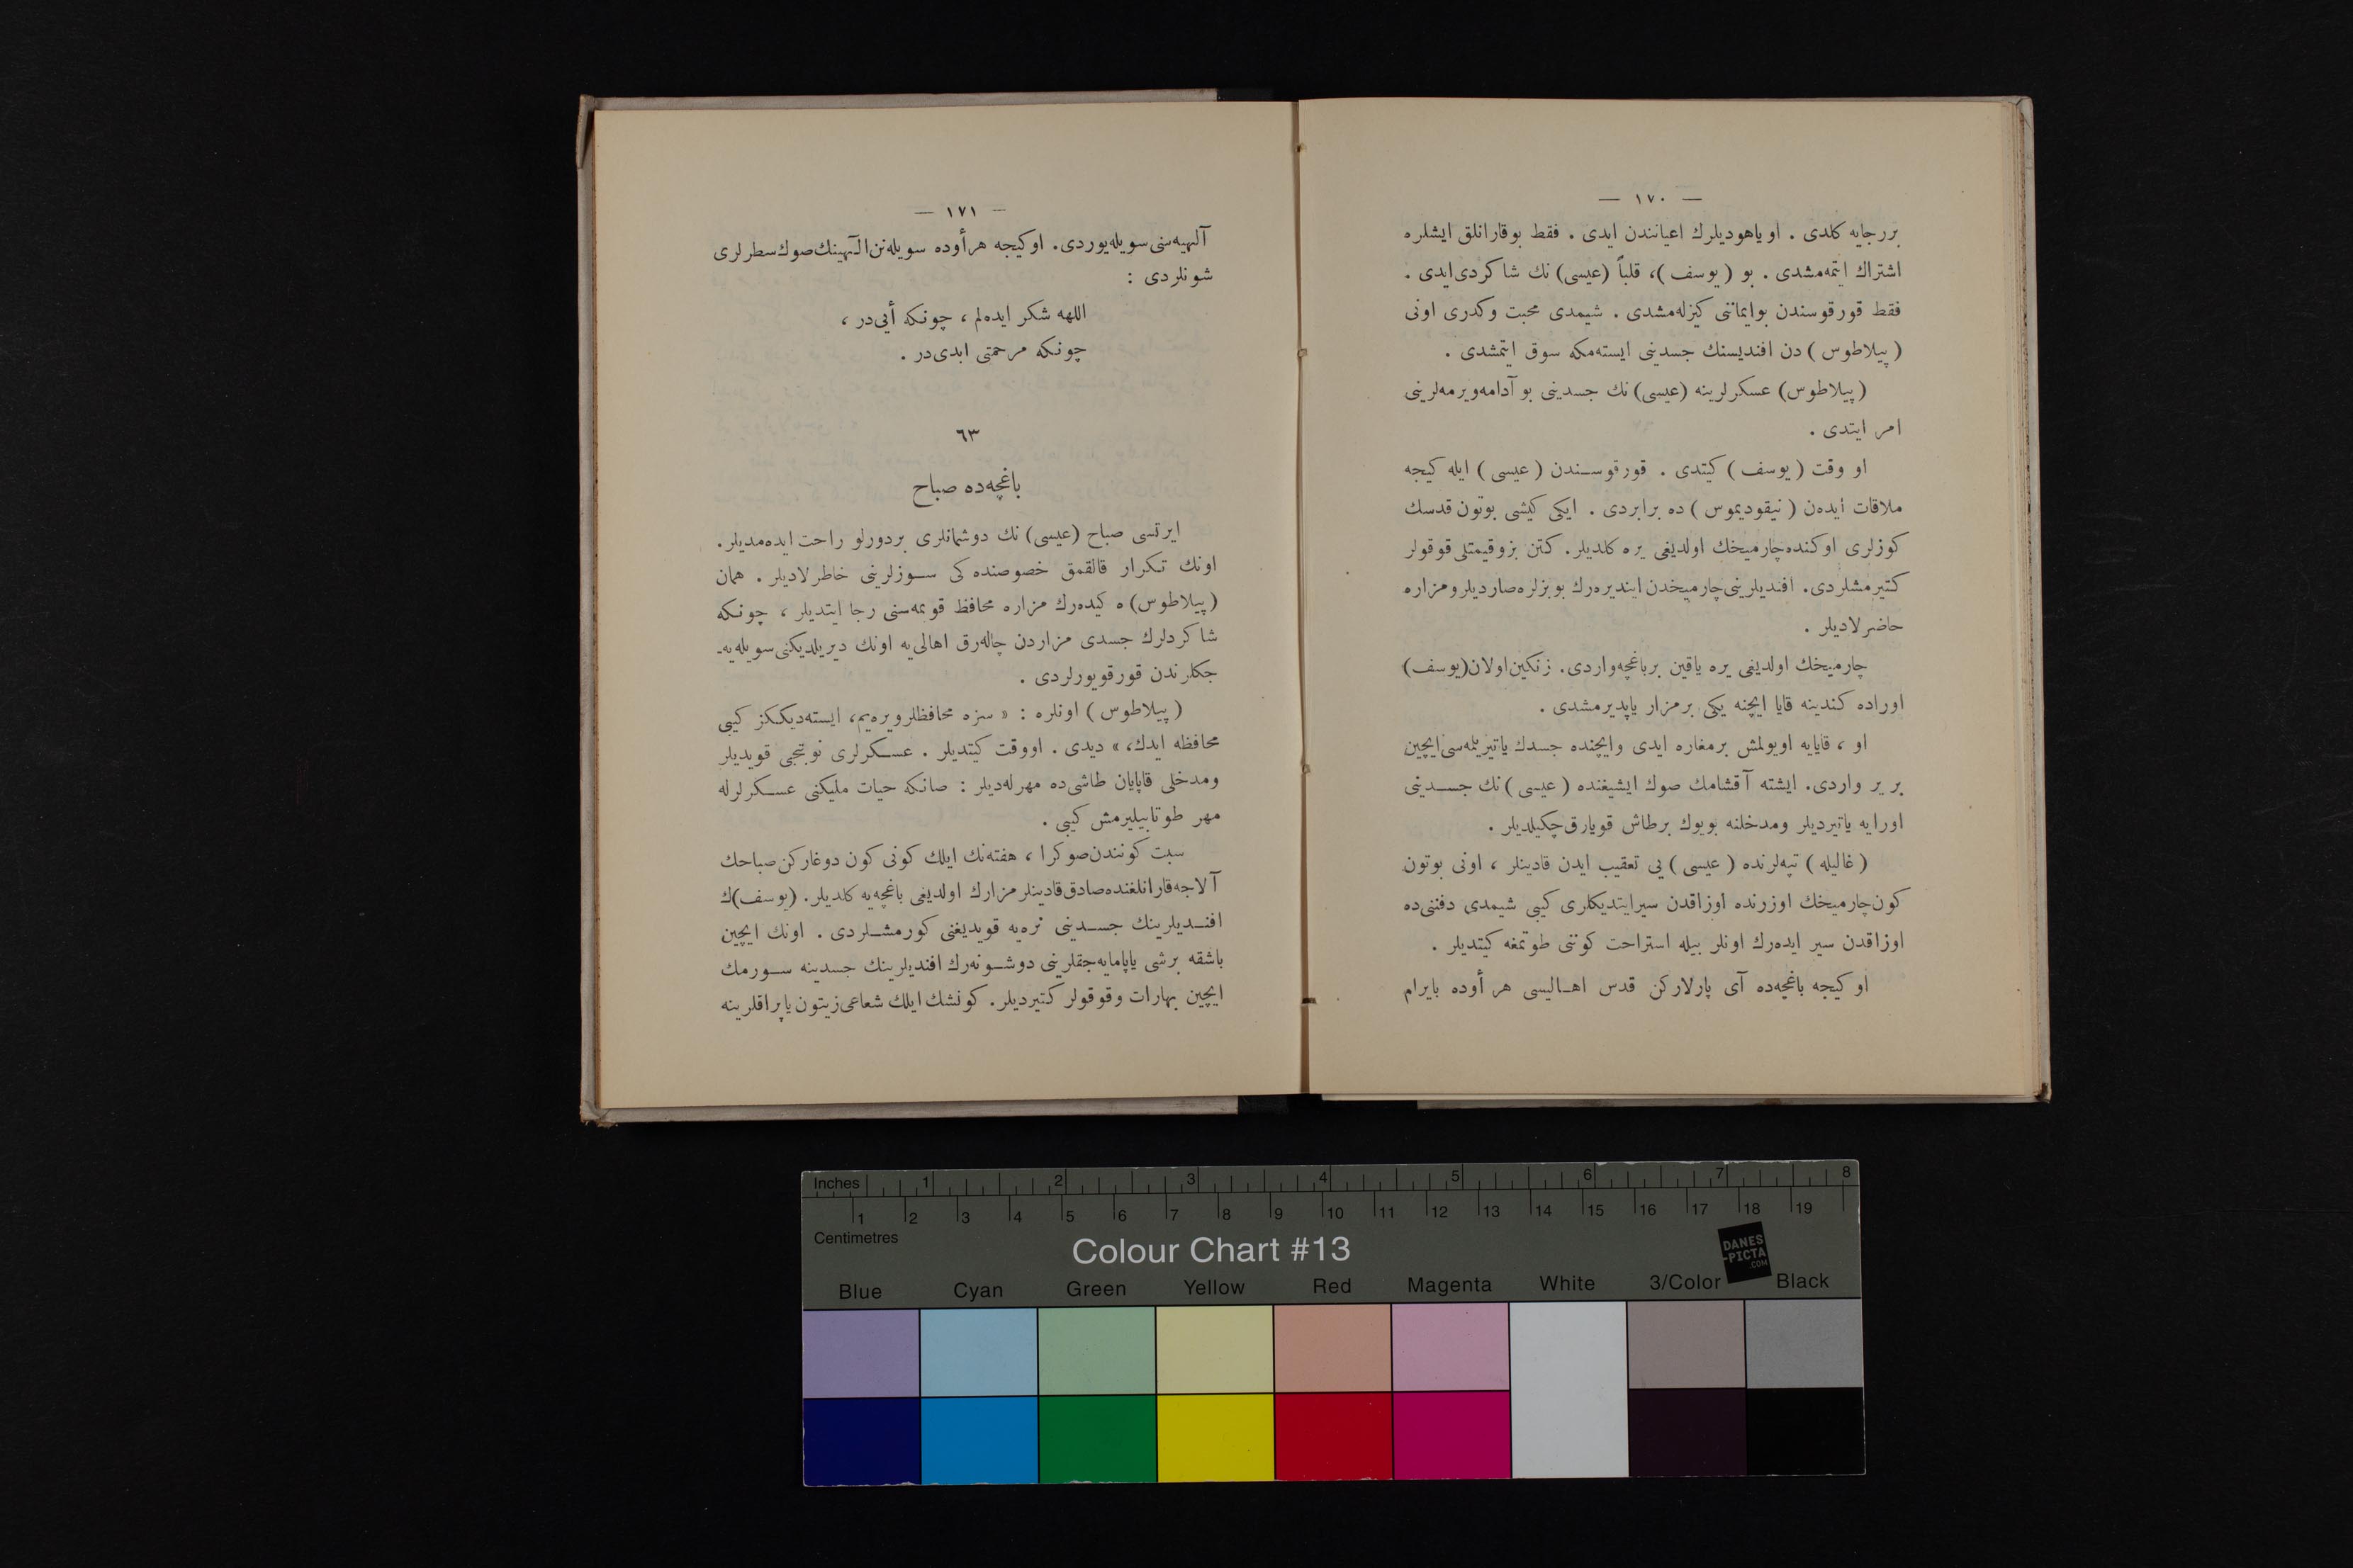 — ١٧٠ —
بررجایه كلدی . او یاهودیلرك اعیانندن ایدی . فقط بوقارانلق ایشلره
اشتراك ایتمه‌مشدی . بو ( یوسف )، قلباً (عیسی) نك شاكردی ایدی .
فقط قورقوسندن بوایماننی كیزله‌مشدی . شیمدی محبت وكدری اونی
( پیلاطوس ) دن افندیسنك جسدینی ایسته‌مكه سوق ایتمشدی .
( پیلاطوس) عسكرلرینه (عیسی) نك جسدینی بو آدامه‌ویرمه‌لرینی
امر ایتدی .
او وقت ( یوسف ) كیتدی . قورقوسندن ( عیسی ) ایله كیجه
ملاقات ایده‌ن ( نیقودیموس ) ده برابردی . ایكی كیشی بوتون قدسك
كوزلری اوكنده چارمیخك اولدیغی یره كلدیلر. كتن بزوقیمتلی قوقولر
كتیرمشلردی. افندیلرینی چارمیخدن ایندیره‌رك بوبزلره صاردیلرومزاره
حاضرلادیلر .
چارمیخك اولدیغی یره یاقین برباغچه‌واردی. زنكین اولان (یوسف)
اوراده كندینه قایا ایچنه یكی برمزار یاپدیرمشدی .
او ، قایایه اویولمش برمغاره ایدی وایچنده جسدك یاتیریلمه‌سی ایچین
بر یر واردی. ایشته آقشامك صوك ایشیغنده ( عیسی ) نك جسدینی
اورایه یاتیردیلر ومدخلنه بویوك برطاش قویارق چكیلدیلر .
( غالیله ) تپه‌لرنده ( عیسی ) یی تعقیب ایدن قادینلر ، اونی بوتون
كون چارمیخك اوزرنده اوزاقدن سیرایتدیكلری كیبی شیمدی دفننی‌ده
اوزاقدن سیر ایده‌رك اونلر بیله استراحت كوننی طوتمغه كیتدیلر .
او كیجه باغچه‌ده آی پارلاركن قدس اهالیسی هر أوده بایرام
— ١٧١ —
آلهیه‌سنی سویله‌یوردی. اوكیجه هرأوده سویله‌نن الٓهینك صوك سطرلری
شونلردی :
اللهه شكر ایده‌لم ، چونكه أیی‌در ،
چونكه مرحمتی ابدی‌در .
٦٣
باغچه‌ده صباح
ایرتسی صباح (عیسی) نك دوشمانلری بردورلو راحت ایده‌مدیلر.
اونك تكرار قالقمق خصوصنده كی سوزلرینی خاطرلادیلر . همان
( پیلاطوس) ه كیده‌رك مزاره محافظ قویمه‌سنی رجا ایتدیلر ، چونكه
شاكردلرك جسدی مزاردن چاله‌رق اهالی‌یه اونك دیریلدیكنی سویله‌یه‌ـ
جكلرندن قورقویورلردی .
( پیلاطوس ) اونلره : « سزه محافظلرویره‌یم، ایسته‌دیككز كیبی
محافظه ایدك، » دیدی . اووقت كیتدیلر . عسكرلری نوبتجی قویدیلر
ومدخلی قاپایان طاشی‌ده مهرله‌دیلر : صانكه حیات ملیكنی عسكرلرله
مهر طوتابیلیرمش كیبی .
سبت كونندن‌صوكرا ، هفته‌نك ایلك كونی كون دوغاركن صباحك
آلاجه‌قارانلغنده صادق قادینلر مزارك اولدیغی باغچه‌یه كلدیلر. (یوسف)ك
افندیلرینك جسدینی نره‌یه قویدیغنی كورمشلردی . اونك ایچین
باشقه برشی یاپامایه‌جقلرینی دوشونه‌رك افندیلرینك جسدینه سورمك
ایچین بهارات وقوقولر كتیردیلر. كونشك ایلك شعاعی زیتون یاپراقلرینه
Inches 1 2 3 4 5 6 7 8
1 2 3 4 5 6 7 8 9 10 11 12 13 14 15 16 17 18 19
Centimetres
Colour Chart #13
DANES
-PICTA
.COM
Blue Cyan Green Yellow Red Magenta White 3/Color Black